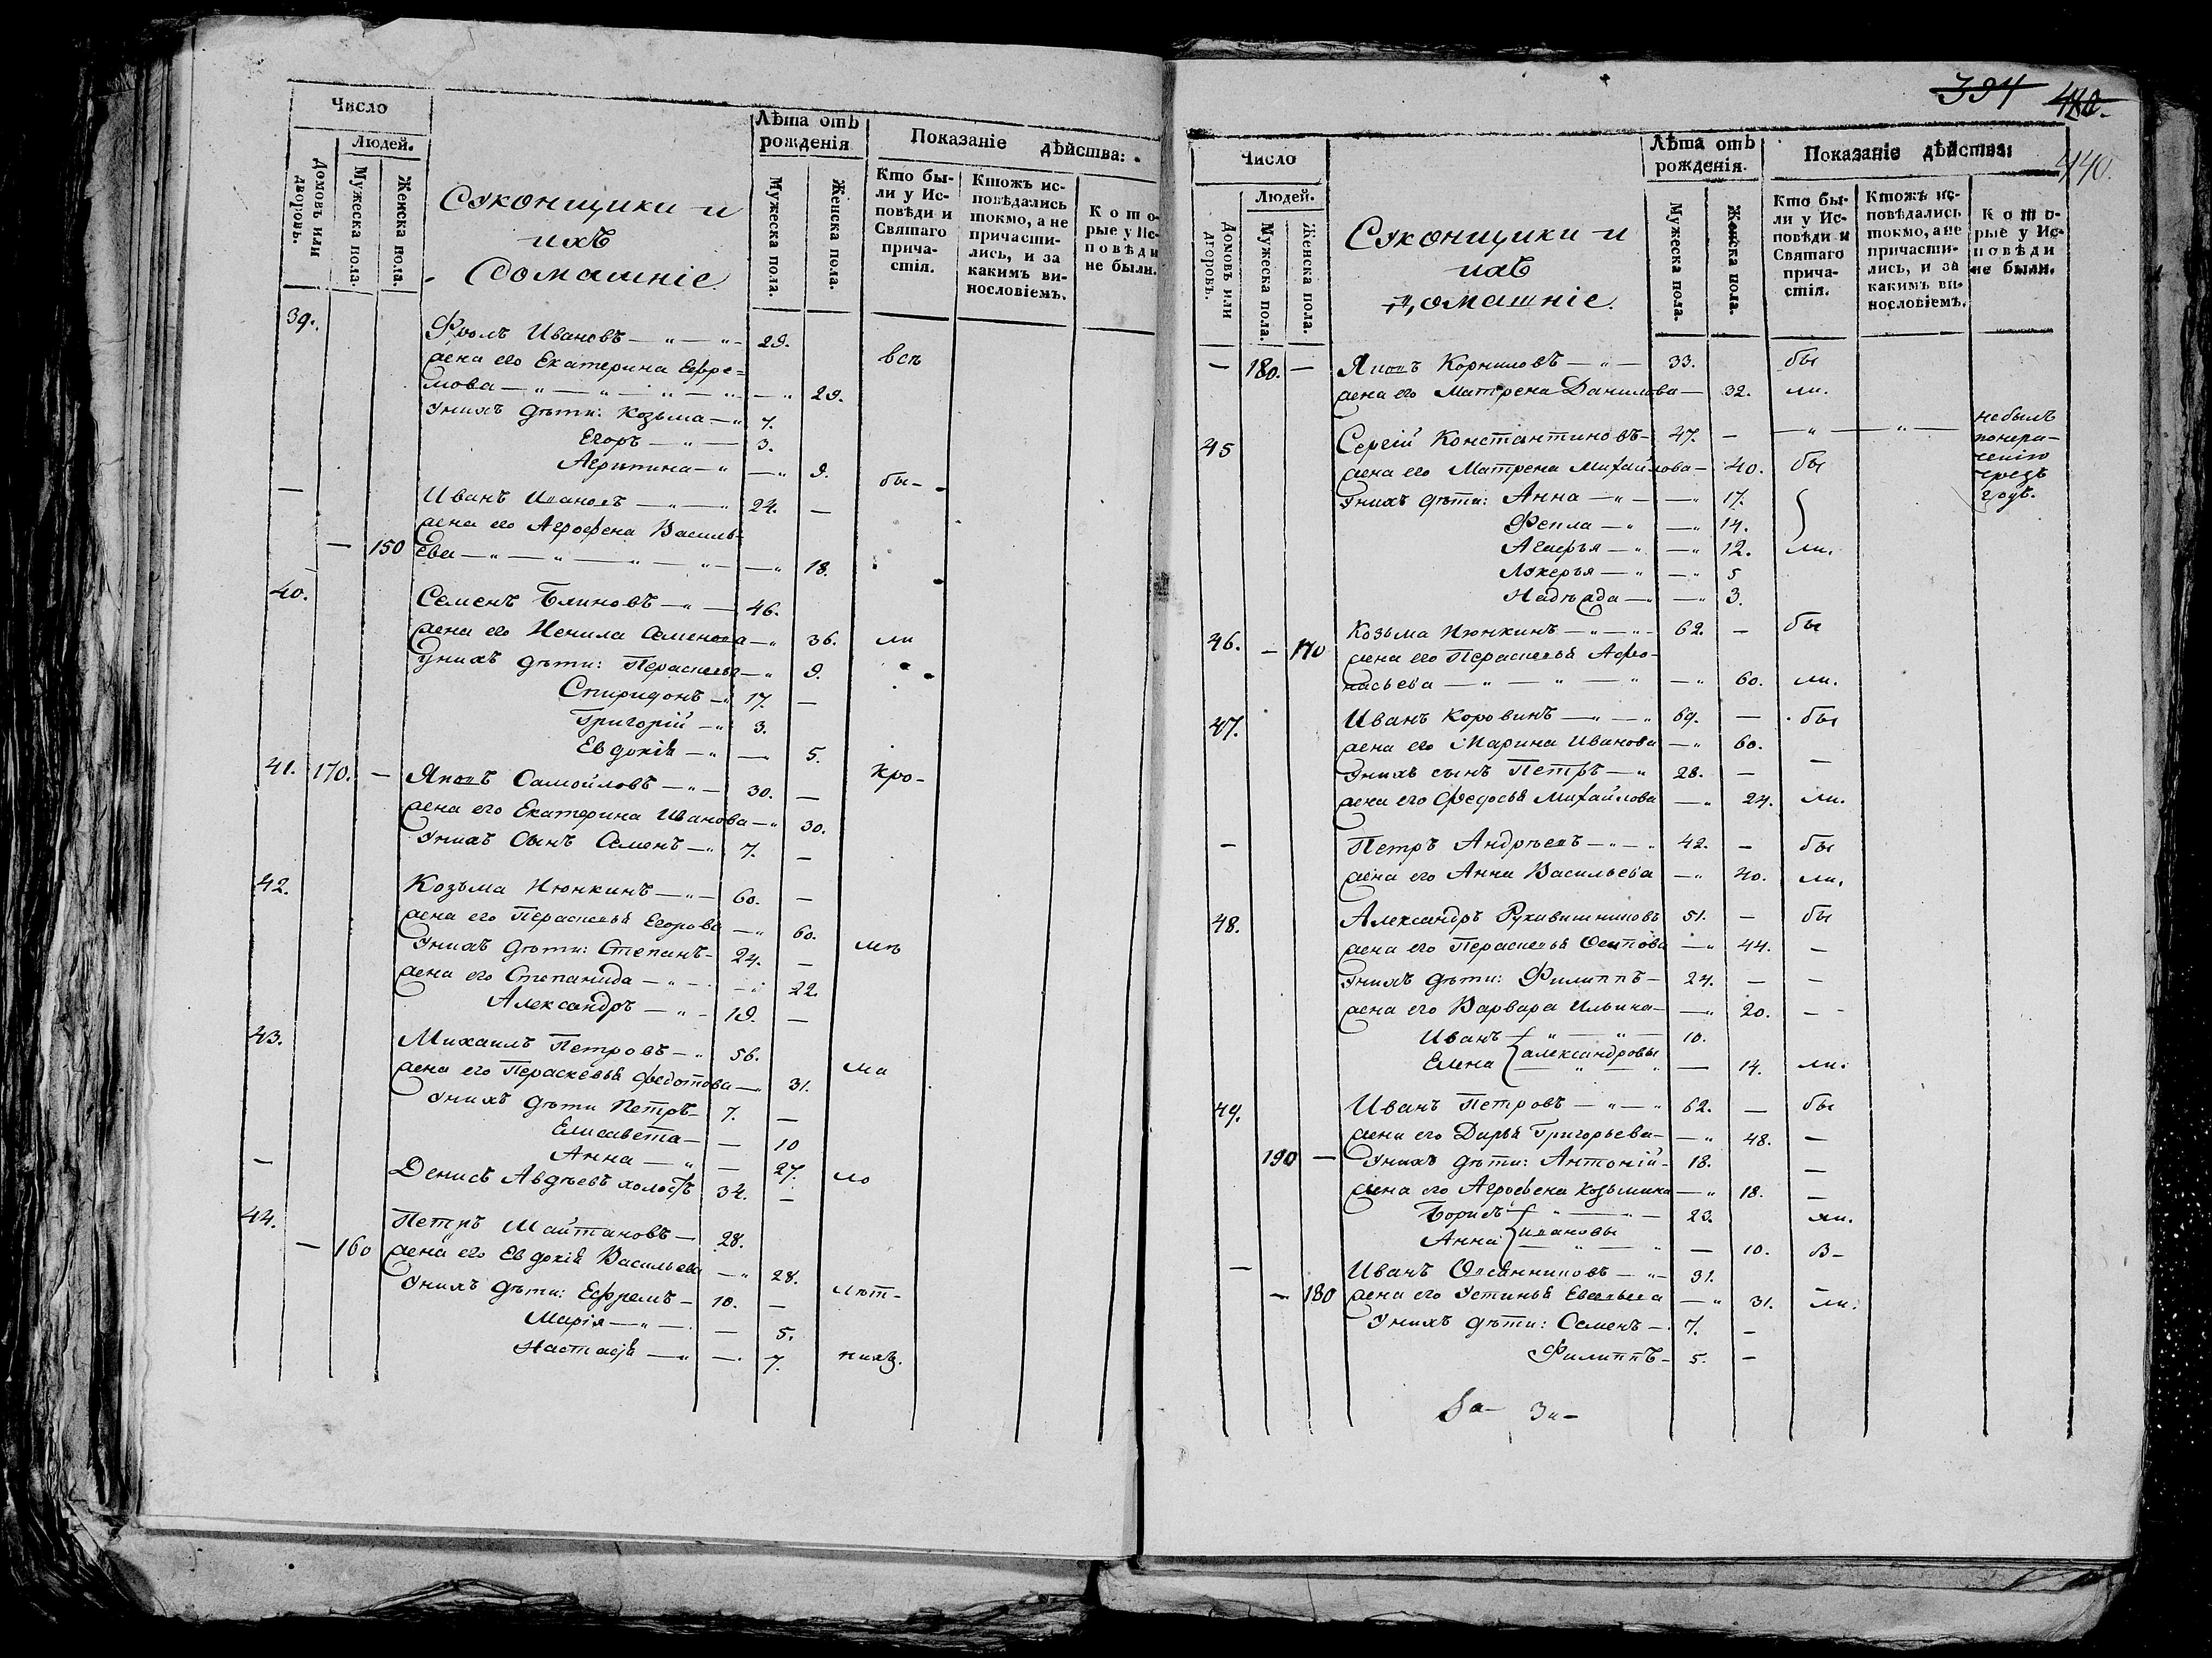 Число
Людей.
Домовъ или дворовъ.
Мужеска пола.
Женска пола.
Суконщики и
ихъ
домашніе
Лѣта отъ
рожденія
Мужеска пола.
Женска пола.
Показаніе дѣйства:
Кто бы-
ли у Ис-
повѣди и
Святаго
прича-
стія.
Ктожъ ис-
повѣдались
токмо, а не
причасти-
лись, и за
какимъ ви-
нословіемъ.
Кото-
рые у Ис-
повѣди
не были.
39. Фролъ Ивановъ — 29.
жена его Екатерина Ефре= всѣ
мова — 29.
У нихъ дѣти: Козьма — 7.
Егоръ — 3.
Агрипина — 9.
— Иванъ Ивановъ — 24. — бы-
жена его Агрофена Василь-
— 150 ева — 18.
40. Семенъ Блиновъ — 46.
жена его Ненила Семенова — 36. ли
У нихъ дѣти: Пераскевья — 9.
Спиридонъ — 17. —
Григорій — 3.
Евдокія — 5.
41. 170. — Яковъ Самойловъ — 30. — кро-
жена его Екатерина Иванова — 30.
У нихъ сынъ Семенъ — 7. —
42. Козьма Нюнкинъ — 60. —
жена его Пераскевья Егорова — 60.
У нихъ дѣти: Степанъ — 24. — мѣ
жена его Степанида — 22.
Александръ — 19. —
43. Михаилъ Петровъ — 56.
жена его Пераскевья Федотова — 31. ма
У нихъ дѣти Петръ — 7. —
Елисавета — 10
Анна — 27.
— Денисъ Авдѣевъ холостъ 32. — ло
44. Петръ Шайтановъ — 28.
— 160 жена его Евдокія Васильева — 28.
У нихъ дѣти: Ефремъ — 10. — лѣт-
Марія — 5.
Настасья — 7. нихъ.
394 440.
440.
Число
Людей.
Домовъ или дворовъ.
Мужеска пола.
Женска пола.
Суконщики и
ихъ
домашніе.
Лѣта отъ
рожденія.
Мужеска пола.
Женска пола.
Показаніе дѣйства:
Кто бы-
ли у Ис-
повѣди и
Святаго
прича-
стія.
Ктожъ ис-
повѣдались
токмо, а не
причасти-
лись, и за
какимъ ви-
нословіемъ.
Кото-
рые у Ис-
повѣди
не были.
— 180. — Яковъ Корниловъ — 33. бы
жена его Матрена Данилова — 32. ли.
45 Сергій Константиновъ — 47. — небылъ
жена его Матрена Михайлова — 40. бы
У нихъ дѣти: Анна — 17. годъ.
Фекла — 14.
Агафья — 12. ли.
Лукерья — 5
Надежда — 3.
46. — 170 Козьма Нюнкинъ — 62. — бы
жена его Пераскевья Афо-
насьева — 60. ли.
47. Иванъ Коровинъ — 69. — бы
жена его Марина Иванова — 60.
У нихъ сынъ Петръ — 28. — —
жена его Федосья Михайлова — 24. ли.
— Петръ Андрѣевъ — 42. — бы
жена его Анна Васильева — 40. ли.
48. Александръ Рукавишниковъ 51. — бы
жена его Пераскевья Осипова — 44. —
У нихъ дѣти: Филиппъ — 24. — —
жена его Варвара Ильина — 20. —
Иванъ — 10.
Елена } александровы — 14. ли.
49. Иванъ Петровъ — 62. — бы
жена его Дарья Григорьева — 48. —
190 — У нихъ дѣти: Антоній — 18. —
жена его Агрофена Козьмина — 18. —
Борисъ — 23. ли.
Анна } Ивановы — 10. В-
— Иванъ Овсянниковъ — 31.
— 180 жена его Устинья Евсеьева — 31. ли.
У нихъ дѣти: Семенъ — 7. —
Филиппъ — 5. —